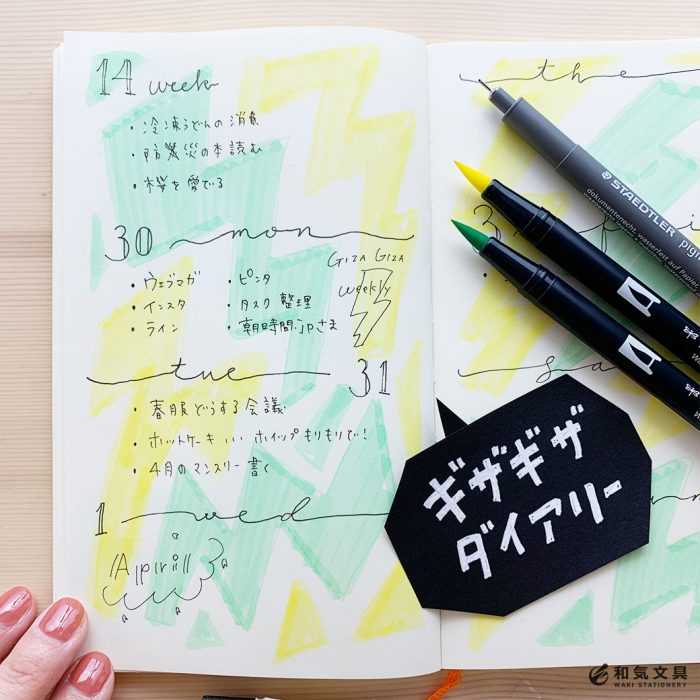 14 week
・冷凍うどんの消費
・防災の本読む
・桜を愛でる
30 mon
GIZA GIZA
weekly
・ウェブマガ ・ピンタ
・インスタ ・タスク整理
・ライン ・朝時間.jpさま
tue 31
・春服どうする会議
・ホットケーキ いい ホイップもりもりで!
・4月のマンスリー書く
1 wed
April
the
3
sa
STAEDTLER
dokumentenecht, wasserfest auf Papier
ギザギザ
ダイアリー
和気文具
WAKI STATIONERY